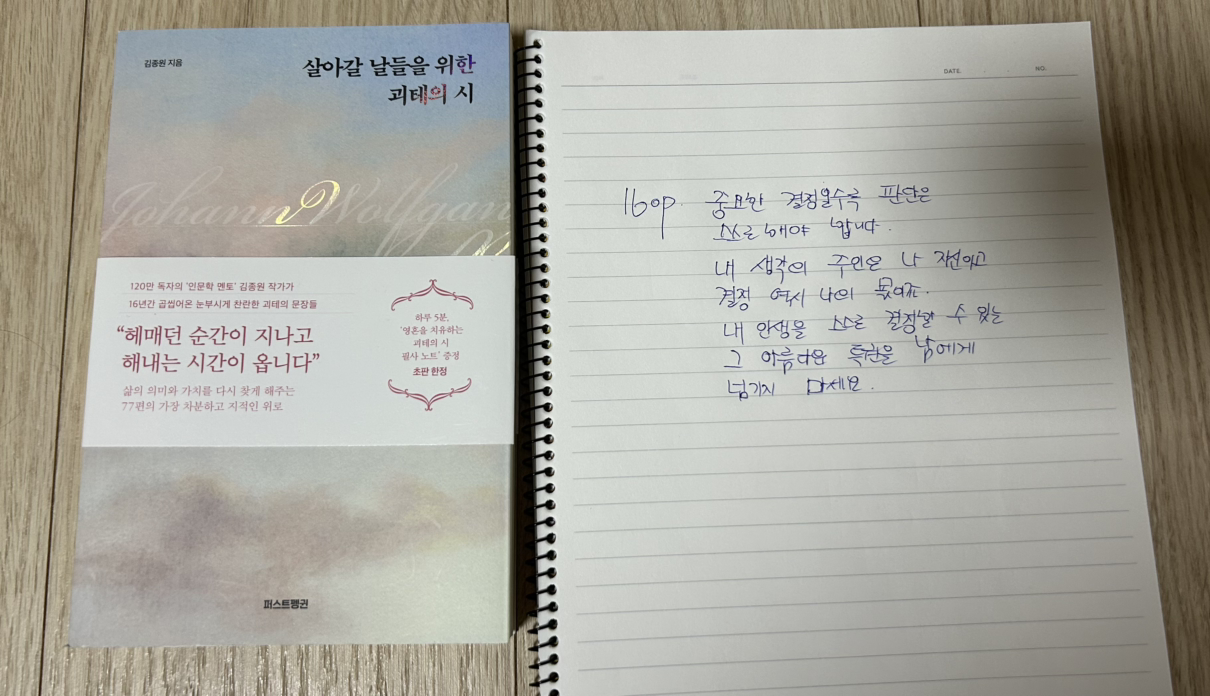 김종원 지음
살아갈 날들을 위한
괴테의 시
Johann Wolfgang
120만 독자의 '인문학 멘토' 김종원 작가가
16년간 곱씹어온 눈부시게 찬란한 괴테의 문장들
"헤매던 순간이 지나고
해내는 시간이 옵니다"
삶의 의미와 가치를 다시 찾게 해주는
77편의 가장 차분하고 지적인 위로
하루 5분,
'영혼을 치유하는
괴테의 시
필사 노트' 증정
초판 한정
퍼스트펭귄
DATE. . . NO.
160p. 중요한 결정일수록 판단은
스스로 해야 합니다.
내 생각의 주인은 나 자신이고
결정 역시 나의 몫이죠.
내 인생을 스스로 결정할 수 있는
그 아름다운 특권을 남에게
넘기지 마세요.